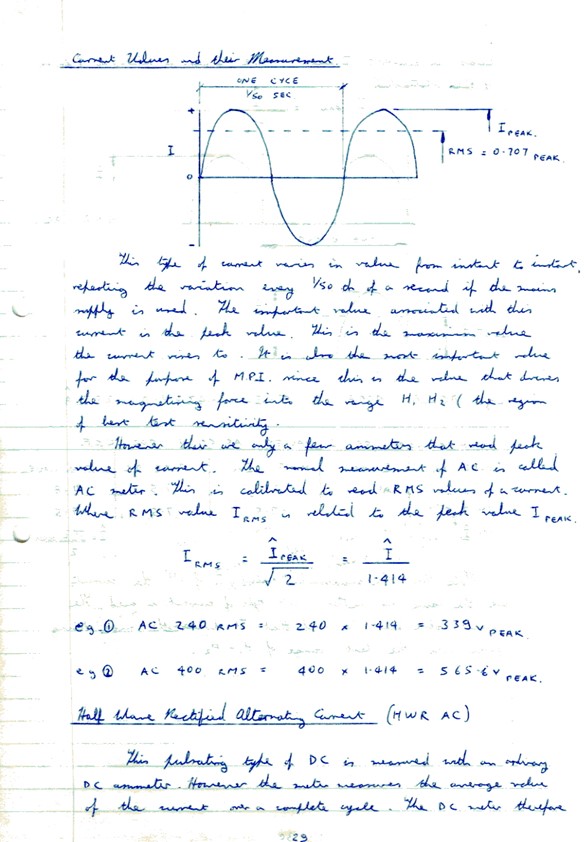 Current Values and their Measurement.
ONE CYCE
1/50 SEC
+
I PEAK.
I
RMS = 0.707 PEAK.
0
-
This type of current varies in value from instant to instant,
repeating the variation every 1/50 th of a second if the mains
supply is used. The important value associated with this
current is the peak value. This is the maximum value
the current rises to. It is also the most important value
for the purpose of M.P.I. since this is the value that drives
the magnetising force into the range H1 H2 (the region
of best test sensitivity.
However their are only a few ammeters that read peak
value of current. The normal measurement of AC is called
AC meter. This is calibrated to read RMS values of a current.
Where RMS value I RMS is related to the peak value I PEAK.
I RMS = Î PEAK / √2 = Î / 1.414
eg ① AC 240 RMS = 240 x 1.414 = 339 v PEAK.
eg ② AC 400 RMS = 400 x 1.414 = 565.6 v PEAK.
Half Wave Rectified Alternating Current (HWR AC)
This pulsating type of DC is measured with an ordinary
DC ammeter. However the meter measures the average value
of the current over a complete cycle. The DC meter therefore
29